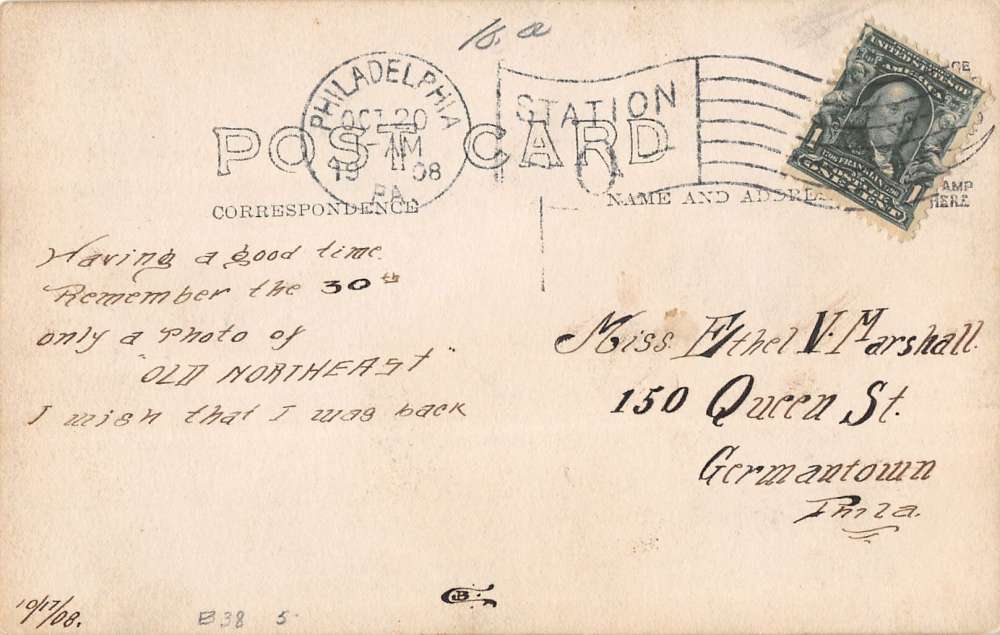 16. a
PHILADELPHIA
OCT 20
-AM
19 08
PA.
STATION
O
POST CARD
CORRESPONDENCE
NAME AND ADDRE
UNITED STATES OF
AMERICA
1 1
FRANKLIN
ONE CENT
GE
AMP
HERE
Having a good time.
Remember the 30th
only a Photo of
"OLD NORTHEAST"
I wish that I was back
Miss. Ethel V. Marshall.
150 Queen St.
Germantown
Phila.
10/17/08.
B38 5